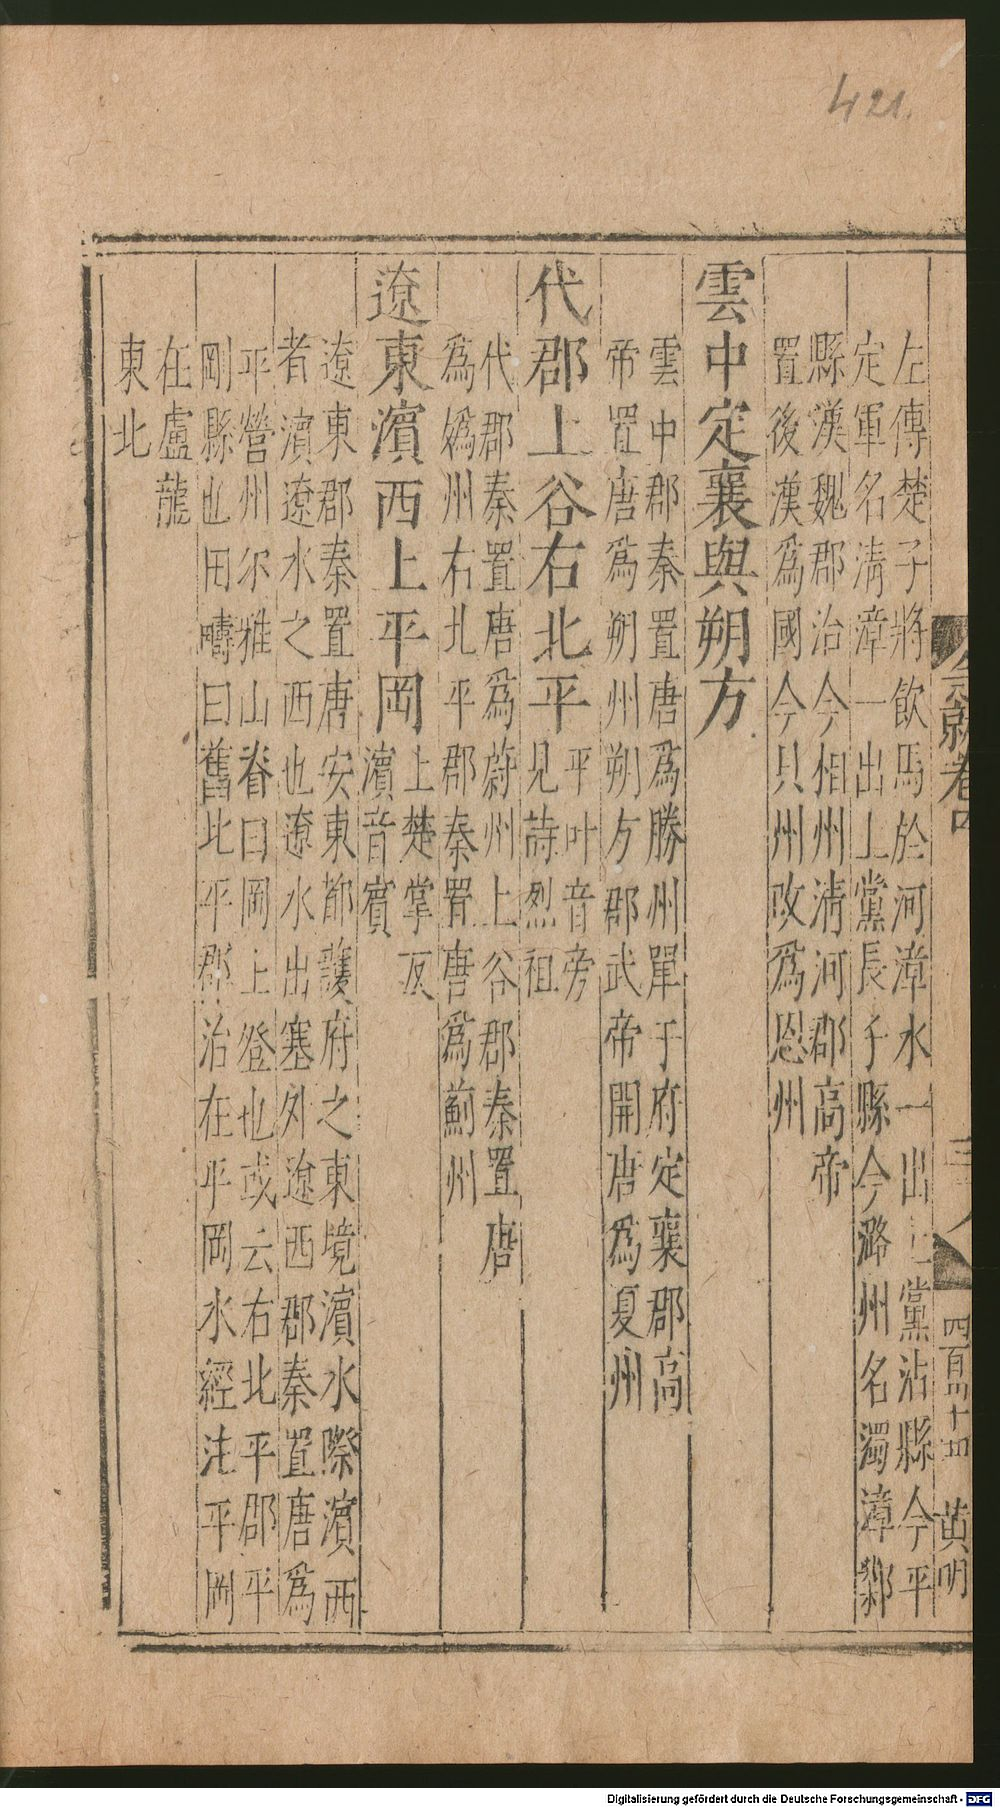 421.
左傳楚子將飲馬於河漳水一出上黨沾縣今平
定軍名清漳一出上黨長子縣今潞州名濁漳鄴
縣漢魏郡治今相州清河郡高帝
置後漢為國今貝州改為恩州
雲中定襄與朔方
雲中郡秦置唐為勝州單于府定襄郡高
帝置唐為朔州朔方郡武帝開唐為夏州
代郡上谷右北平
平叶音旁
見詩烈祖
代郡秦置唐為蔚州上谷郡秦置唐
為媯州右北平郡秦置唐為薊州
遼東濵西上平岡
上楚掌反
濵音賓
遼東郡秦置唐安東都護府之東境濵水際濵西
者濵遼水之西也遼水出塞外遼西郡秦置唐為
平營州尔雅山脊曰岡上登也或云右北平郡平
剛縣也田疇曰舊北平郡治在平岡水經注平岡
在盧龍
東北
急就卷四
四百十四
黄明
Digitalisierung gefördert durch die Deutsche Forschungsgemeinschaft - DFG